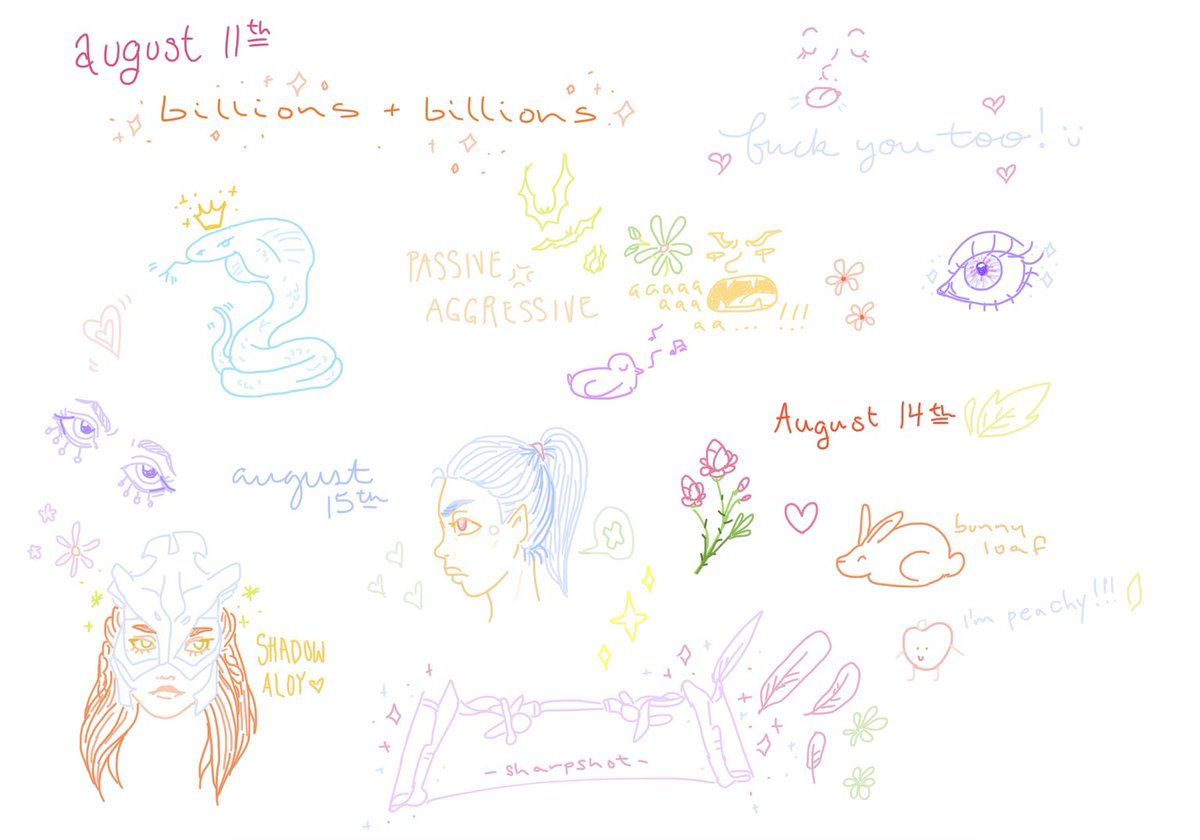 august 11th
billions + billions
fuck you too! :)
PASSIVE
AGGRESSIVE
aaaaa
aaa
aa... !!!
August 14th
august
15th
bunny
loaf
i'm peachy!!!
SHADOW
ALOY ♡
- sharpshot -